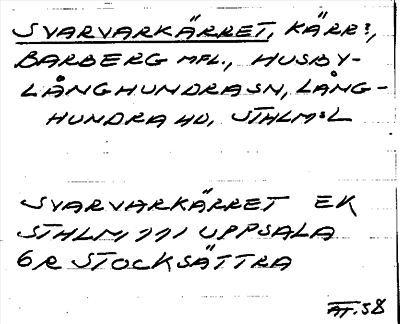 SVARVARKÄRRET, KÄRR?,
BARBERG MFL., HUSBY-
LÅNGHUNDRA SN, LÅNG-
HUNDRA HD, STHLM:L
SVARVARKÄRRET EK
STHLM 111 UPPSALA
6R STOCKSÄTTRA
AT.58